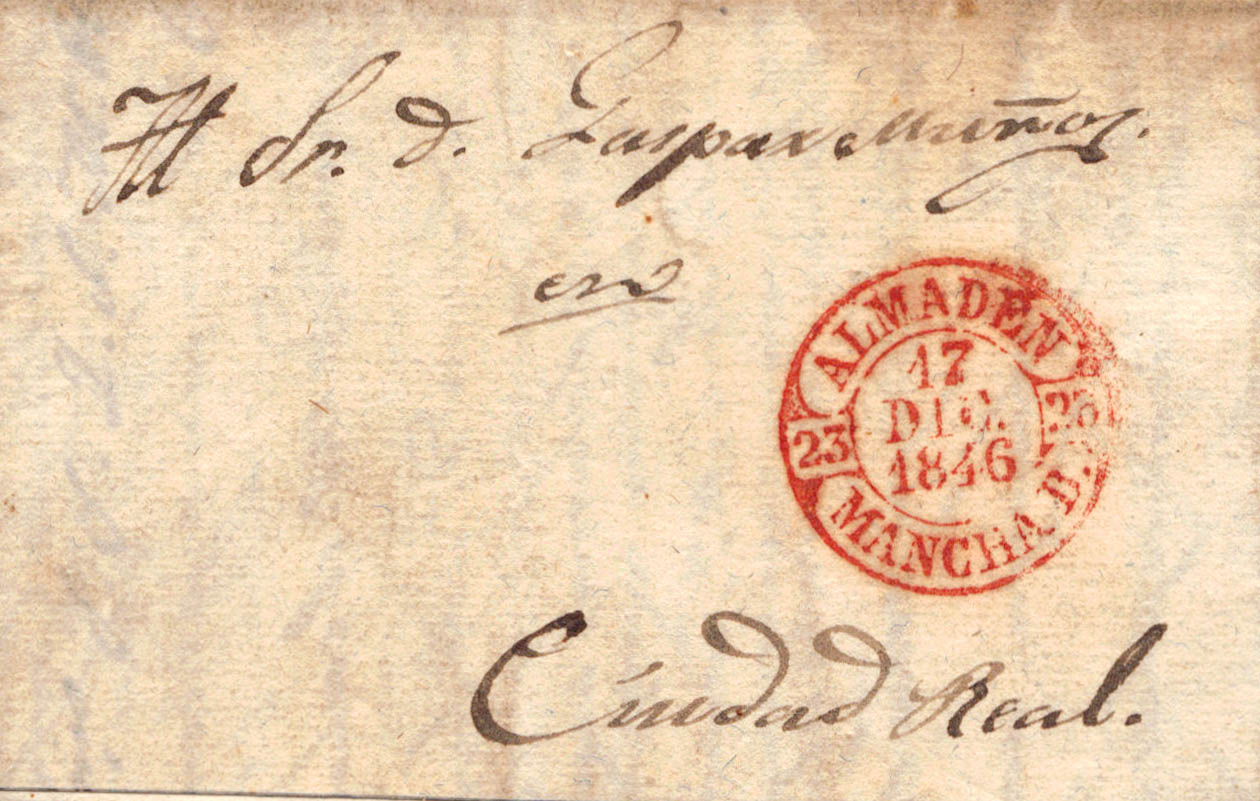 Al Sr. d. Gaspar Muñoz.
en
ALMADEN
17
DIC.
1846
23
23
MANCHA B.
Ciudad Real.